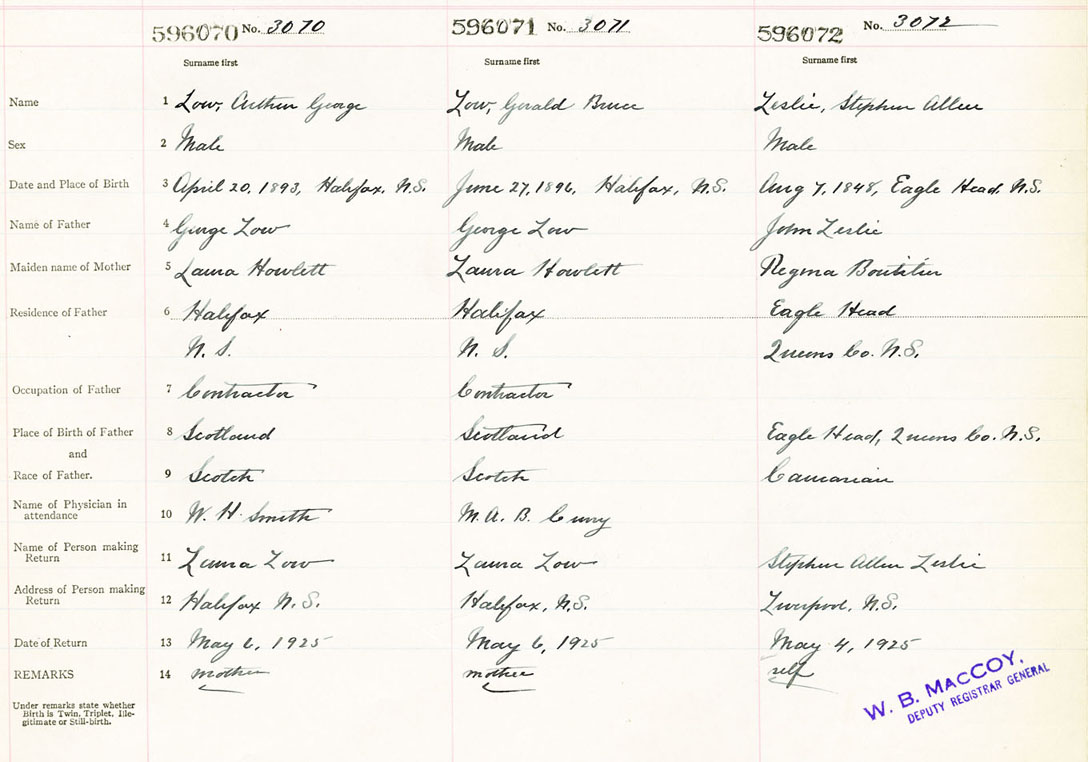 596070 No. 3070 596071 No. 3071 596072 No. 3072
Surname first Surname first Surname first
Name 1 Low, Arthur George Low, Gerald Bruce Leslie, Stephen Allen
Sex 2 Male Male Male
Date and Place of Birth 3 April 20, 1893, Halifax, N.S. June 27, 1896, Halifax, N.S. Aug 7, 1848, Eagle Head, N.S.
Name of Father 4 George Low George Low John Leslie
Maiden name of Mother 5 Laura Howlett Laura Howlett Regina Boutilier
Residence of Father 6 Halifax Halifax Eagle Head
N. S. N. S. Queens Co. N.S.
Occupation of Father 7 Contractor Contractor
Place of Birth of Father 8 Scotland Scotland Eagle Head, Queens Co. N.S.
and
Race of Father. 9 Scotch Scotch Caucasian
Name of Physician in
attendance 10 W. H. Smith M. A. B. Curry
Name of Person making
Return 11 Laura Low Laura Low Stephen Allen Leslie
Address of Person making
Return 12 Halifax N.S. Halifax, N.S. Liverpool, N.S.
Date of Return 13 May 6, 1925 May 6, 1925 May 4, 1925
REMARKS 14 mother mother self
Under remarks state whether
Birth is Twin, Triplet, Ille-
gitimate or Still-birth.
W. B. MACCOY,
DEPUTY REGISTRAR GENERAL